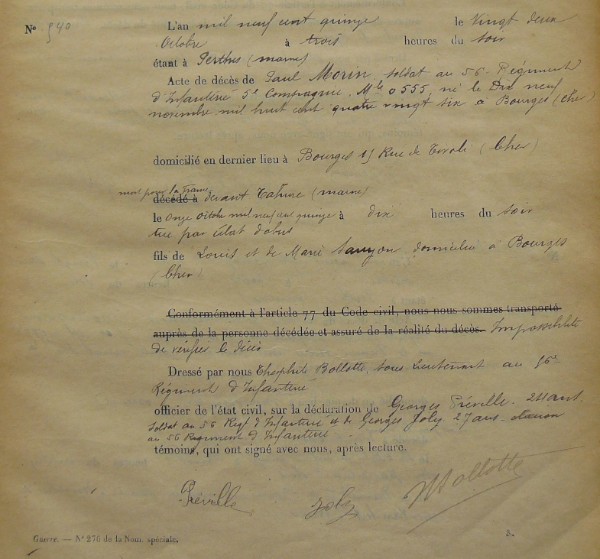 N° 940
L'an mil neuf cent quinze le Vingt deux
Octobre à trois heures du soir
étant à Perthes (marne)
Acte de décès de Paul Morin soldat au 56e Régiment
d'Infanterie 5e Compagnie, Mle 0555, né le Dix neuf
novembre mil huit cent quatre vingt six à Bourges (cher)
domicilié en dernier lieu à Bourges 15 Rue de Tivoli (Cher)
mort pour la France
décédé à devant Tahure (marne)
le onze octobre mil neuf cent quinze à dix heures du soir
tué par éclat d'obus
fils de Louis et de Marie domicilié à Bourges
(Cher)
Conformément à l'article 77 du Code civil, nous nous sommes transporté
auprès de la personne décédée et assuré de la réalité du décès. Impossibilité
de vérifier le décès
Dressé par nous Théophile Mollotte, sous Lieutenant au 56e
Régiment d'Infanterie
officier de l'état civil, sur la déclaration de Georges Préville 21 ans
soldat au 56 Regt d'Infanterie et de Georges Joly 27 ans
au 56 Régiment d'Infanterie
témoins, qui ont signé avec nous, après lecture.
Préville Joly Mollotte
Guerre. — N° 276 de la Nom. spéciale. 5.